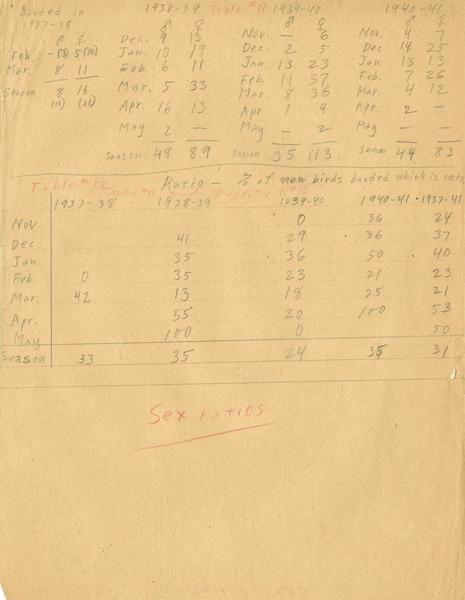 Banded in 1938-39 Table #11 1939-40 1940-41
1937-38 ♂ ♀ ♂ ♀ ♂ ♀
♂ ♀ Dec. 9 13 Nov. — 6 Nov. 4 7
Feb. -(3) 5(10) Jan. 10 19 Dec. 2 5 Dec. 14 25
Mar. 8 11 Feb. 6 11 Jan. 13 23 Jan. 13 13
Season 8 16 Mar. 5 33 Feb. 11 37 Feb. 7 26
(11) (21) Apr. 16 13 Mar. 8 36 Mar. 4 12
May 2 — Apr 1 4 Apr. 2 —
May — 2 May — —
Season 48 89 Season 35 113 Season 44 83
Table #12 Ratio — % of new birds banded which is cocks
1937-38 1938-39 1939-40 1940-41 1937-41
Nov. 0 36 24
Dec. 41 29 36 37
Jan. 35 36 50 40
Feb. 0 35 23 21 23
Mar. 42 13 18 25 21
Apr. 55 20 100 53
May 100 0 50
Season 33 35 24 35 31
Sex ratios